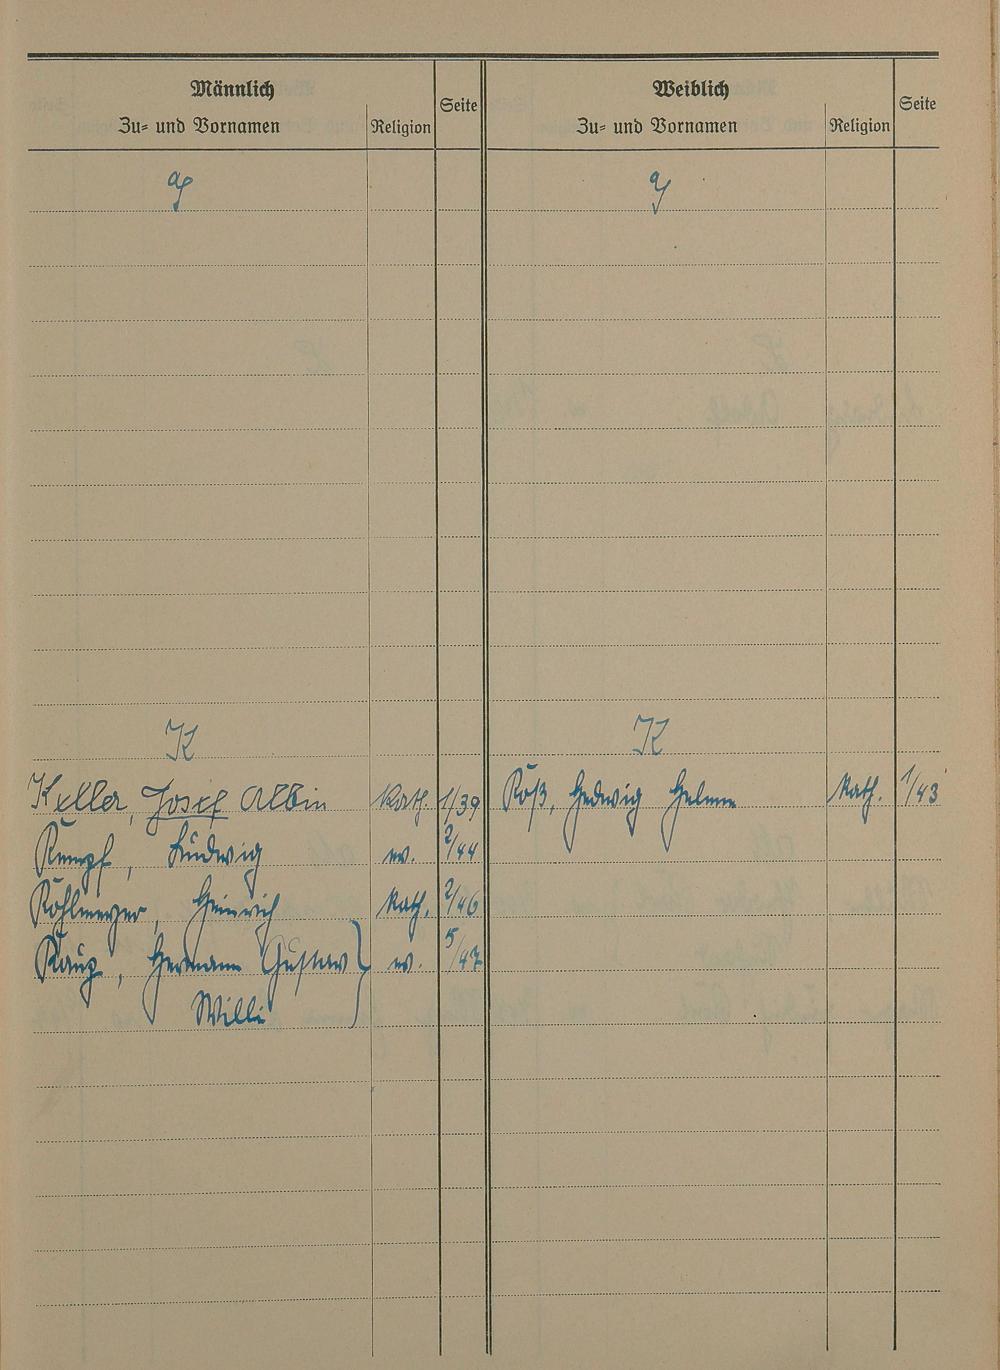 Männlich
Zu- und Vornamen
Religion
Seite
Weiblich
Zu- und Vornamen
Religion
Seite
K
K
Keller, Josef Albin kath. 1/39
Köß, Hedwig Helene kath. 1/43
Kempf, Ludwig ev. 2/44
Kohlmeyer, Heinrich kath. 2/46
Kauz, Hermann Gustav ev. 5/47
Willi